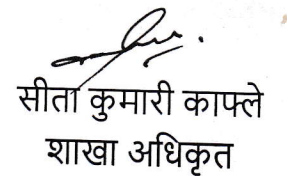 सीता कुमारी काफ्ले
शाखा अधिकृत